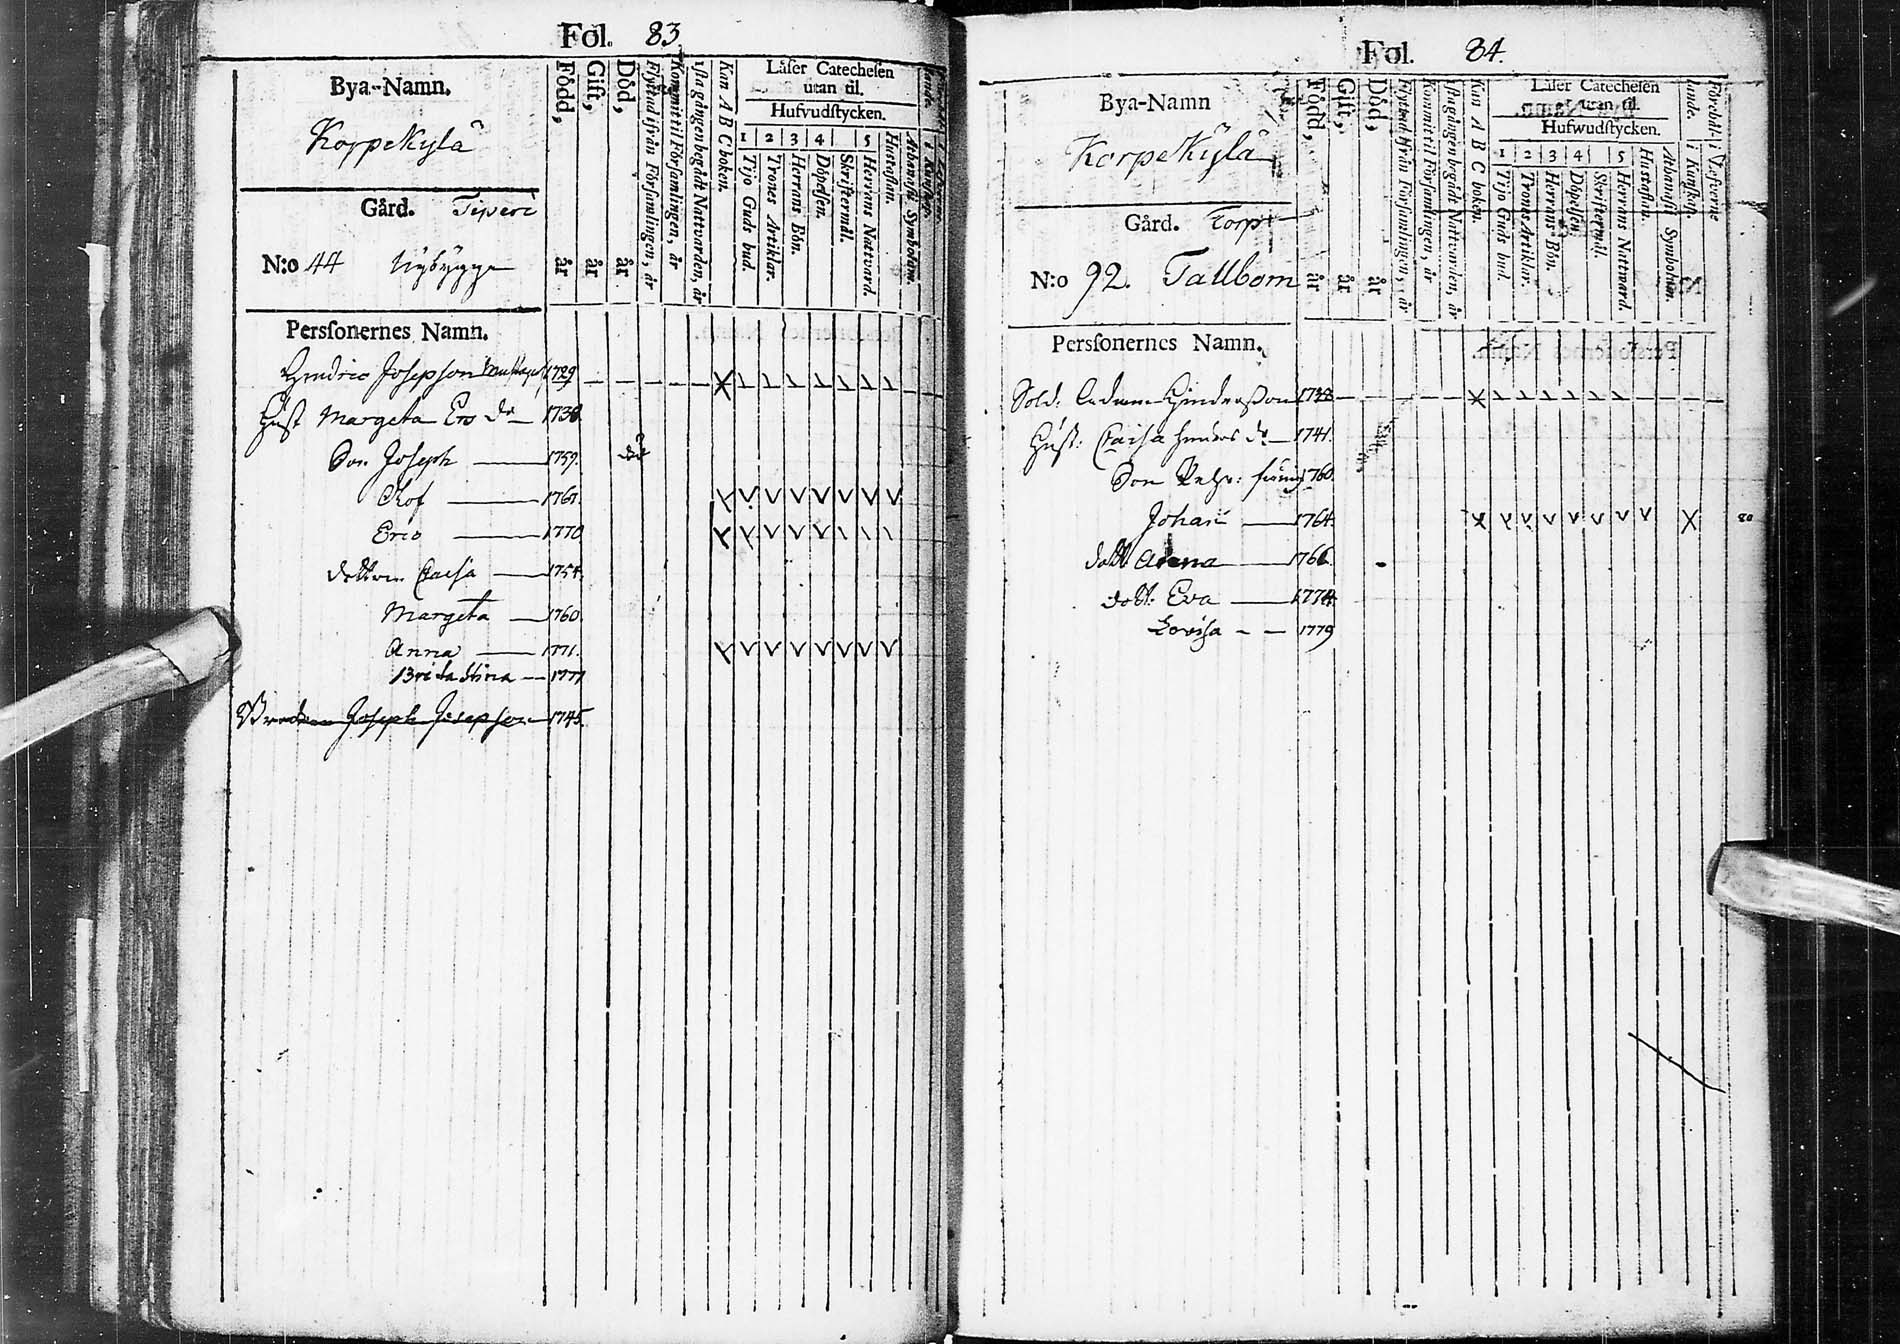 Fol. 83
Bya-Namn.
Korpekylä
Gård. Tiperi
N:o 44 Nybygge
Född, år
Gift, år
Död, år
Flyttad ifrån Församlingen, år
Kommit til Församlingen, år
1sta gången begådt Nattvarden, år
Kan A B C boken.
Läser Catechesen
utan til.
Hufvudstycken.
1 2 3 4 5
Tijo Guds bud.
Trones Artiklar.
Herrans Bön.
Döpelsen.
Skriftermål.
Herrans Nattvard.
Hustaflan.
Athanasii Symbolum.
Personernes Namn.
Hindric Josepson 1729
Hust Margeta Ers dr 1738
Son Joseph 1759.
Olof 1767.
Eric 1770
dottren Caisa 1754.
Margeta 1760.
Anna 1771.
Brita Stina 1777
Joseph Josepson 1745.
Fol. 84.
Bya-Namn
Korpekylä
Gård. Torp
N:o 92. Tallbom
Född, år
Gift, år
Död, år
Flyttad ifrån Församlingen, år
Kommit til Församlingen, år
1sta gången begådt Nattvarden, år
Kan A B C boken.
Läser Catechesen
utan til.
Hufwudstycken.
1 2 3 4 5
Tijo Guds bud.
Trones Artiklar.
Herrans Bön.
Döpelsen
Skriftermål.
Herrans Nattvard.
Hustaflan.
Athanasii Symbolum.
Förehåll i Läsverne
i Kunskap.
Personernes Namn.
Sold. Hindersson
Hust: Caisa Hinders dr 1741.
Son 1760.
Johan 1764.
dott. 1766.
dott. Eva 1774.
Lovisa - - 1779
80